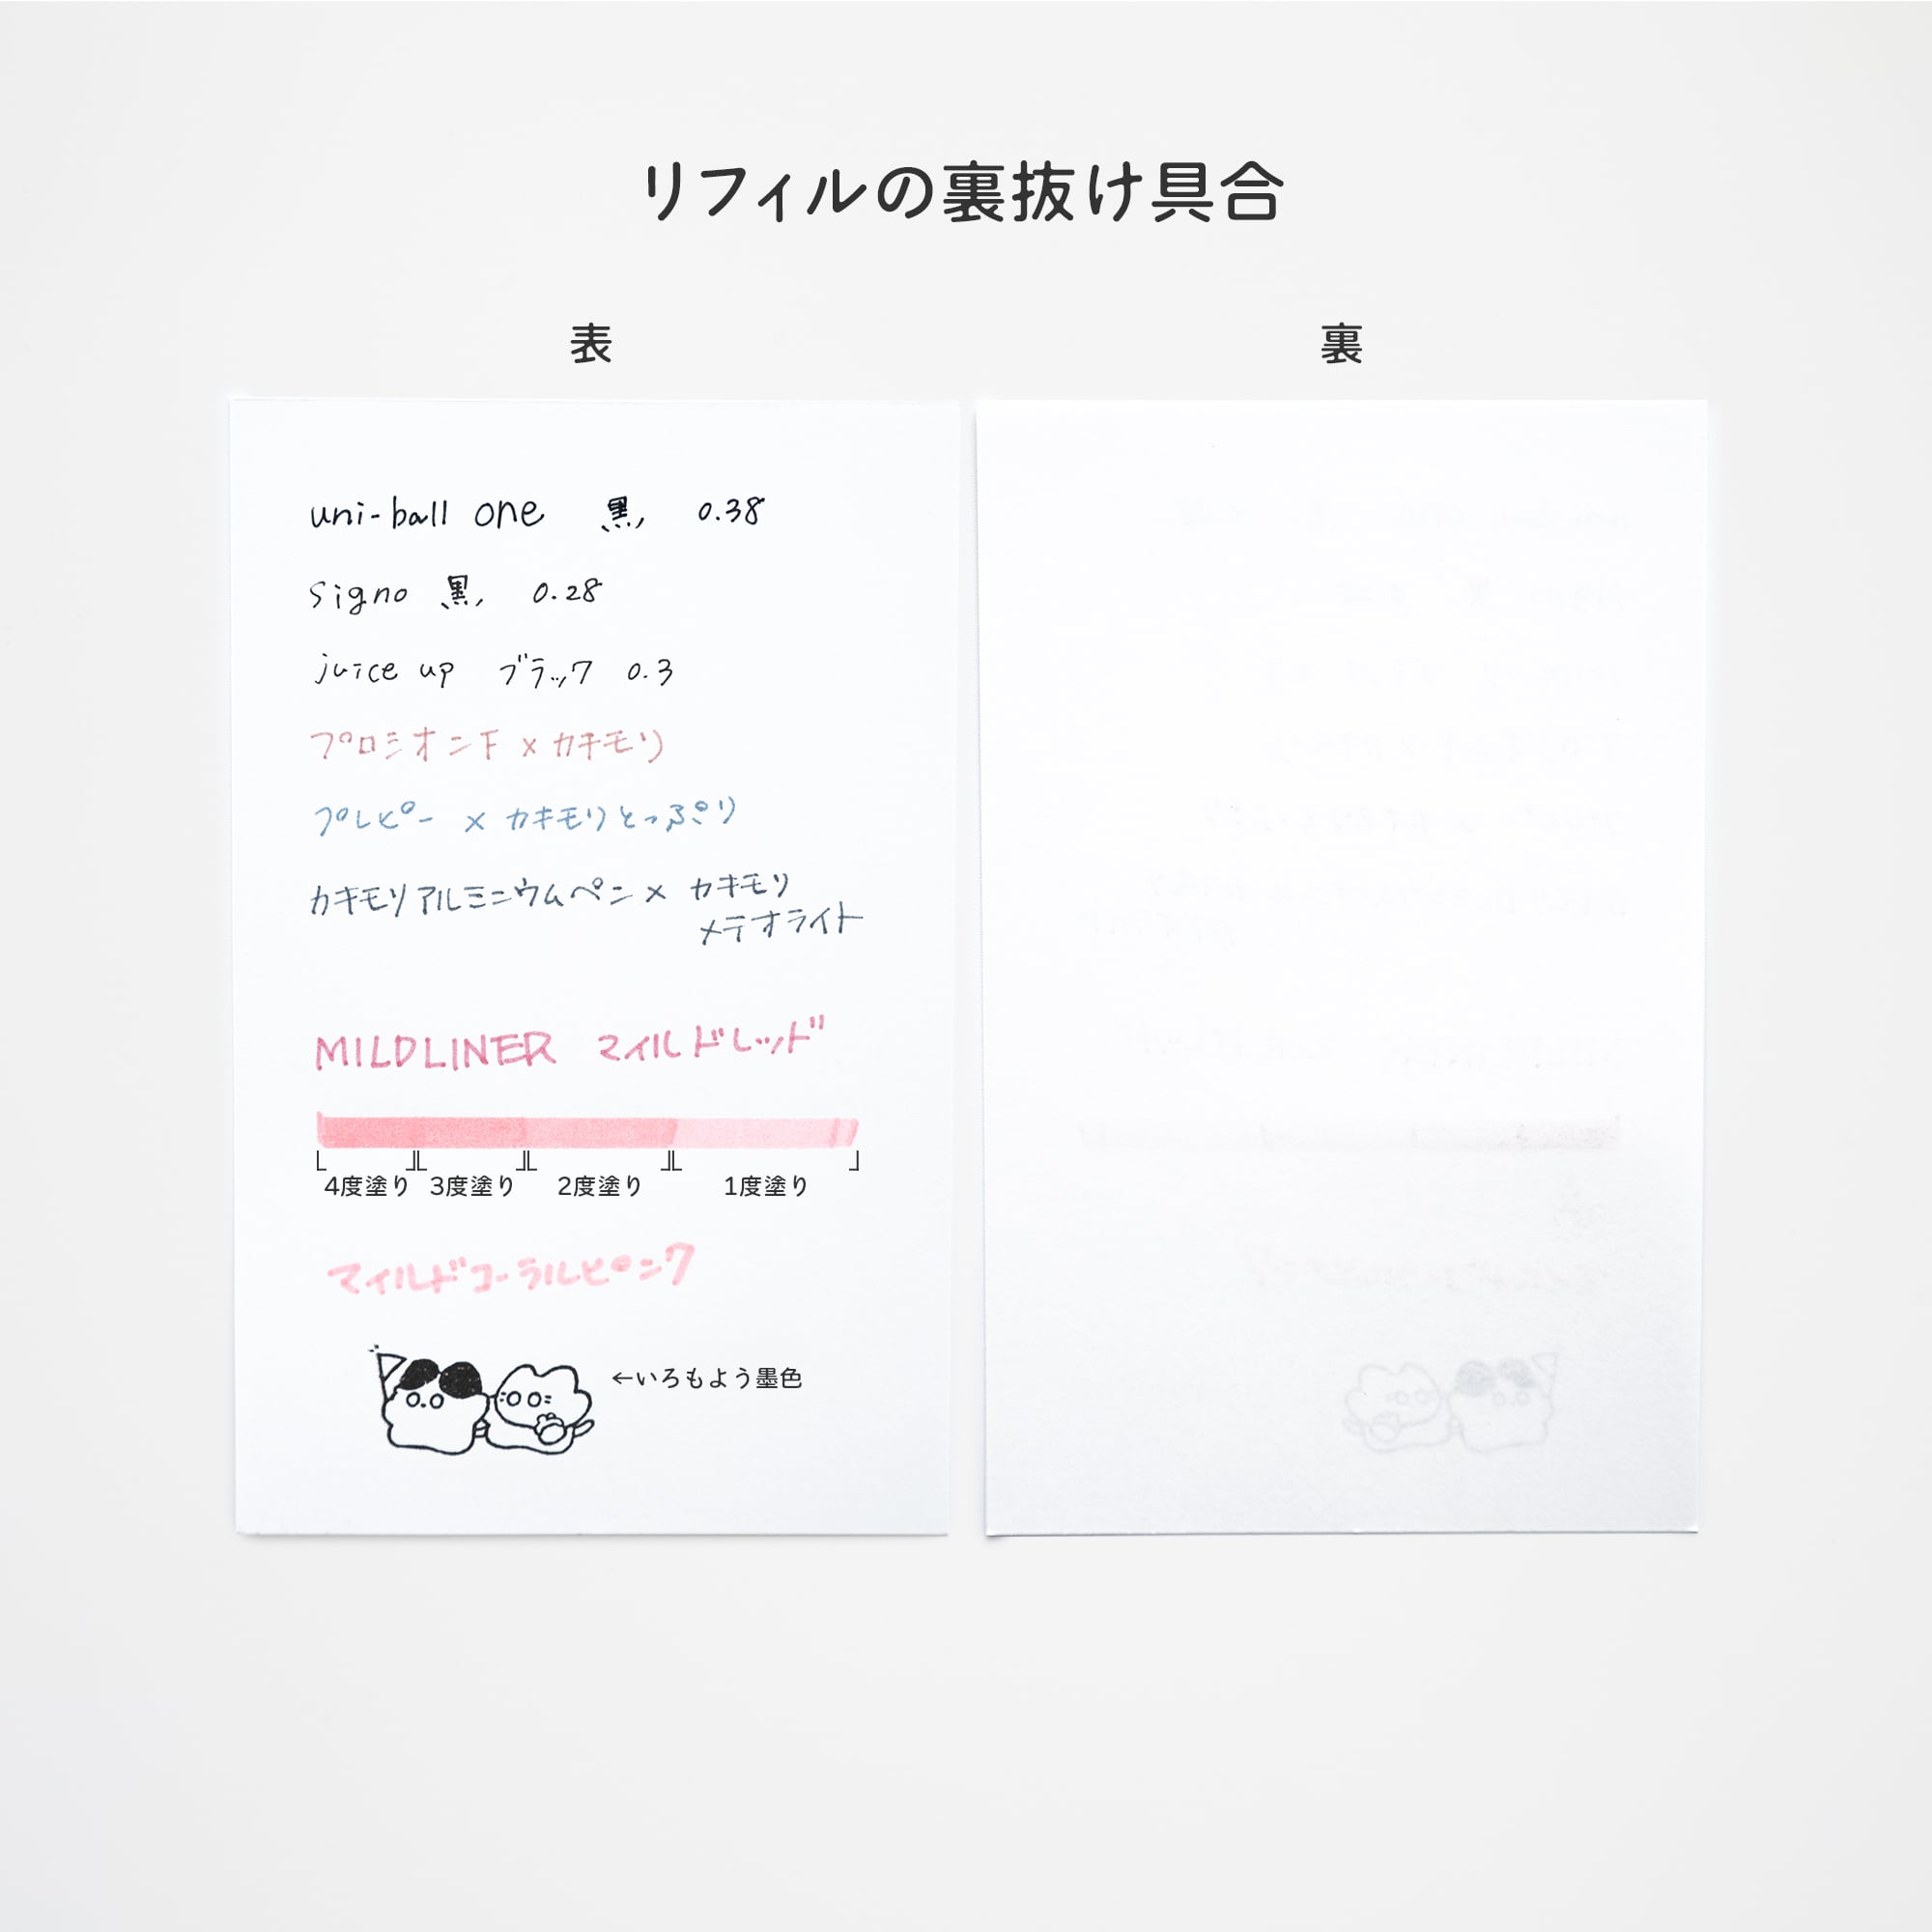 リフィルの裏抜け具合
表
裏
uni-ball one 黒 0.38
Signo 黒 0.28
juice up ブラック 0.3
プロシオンF × カキモリ
プレピー × カキモリとっぷり
カキモリアルミニウムペン × カキモリ
メテオライト
MILDLINER マイルドレッド
4度塗り 3度塗り 2度塗り 1度塗り
マイルドコーラルピンク
←いろもよう墨色